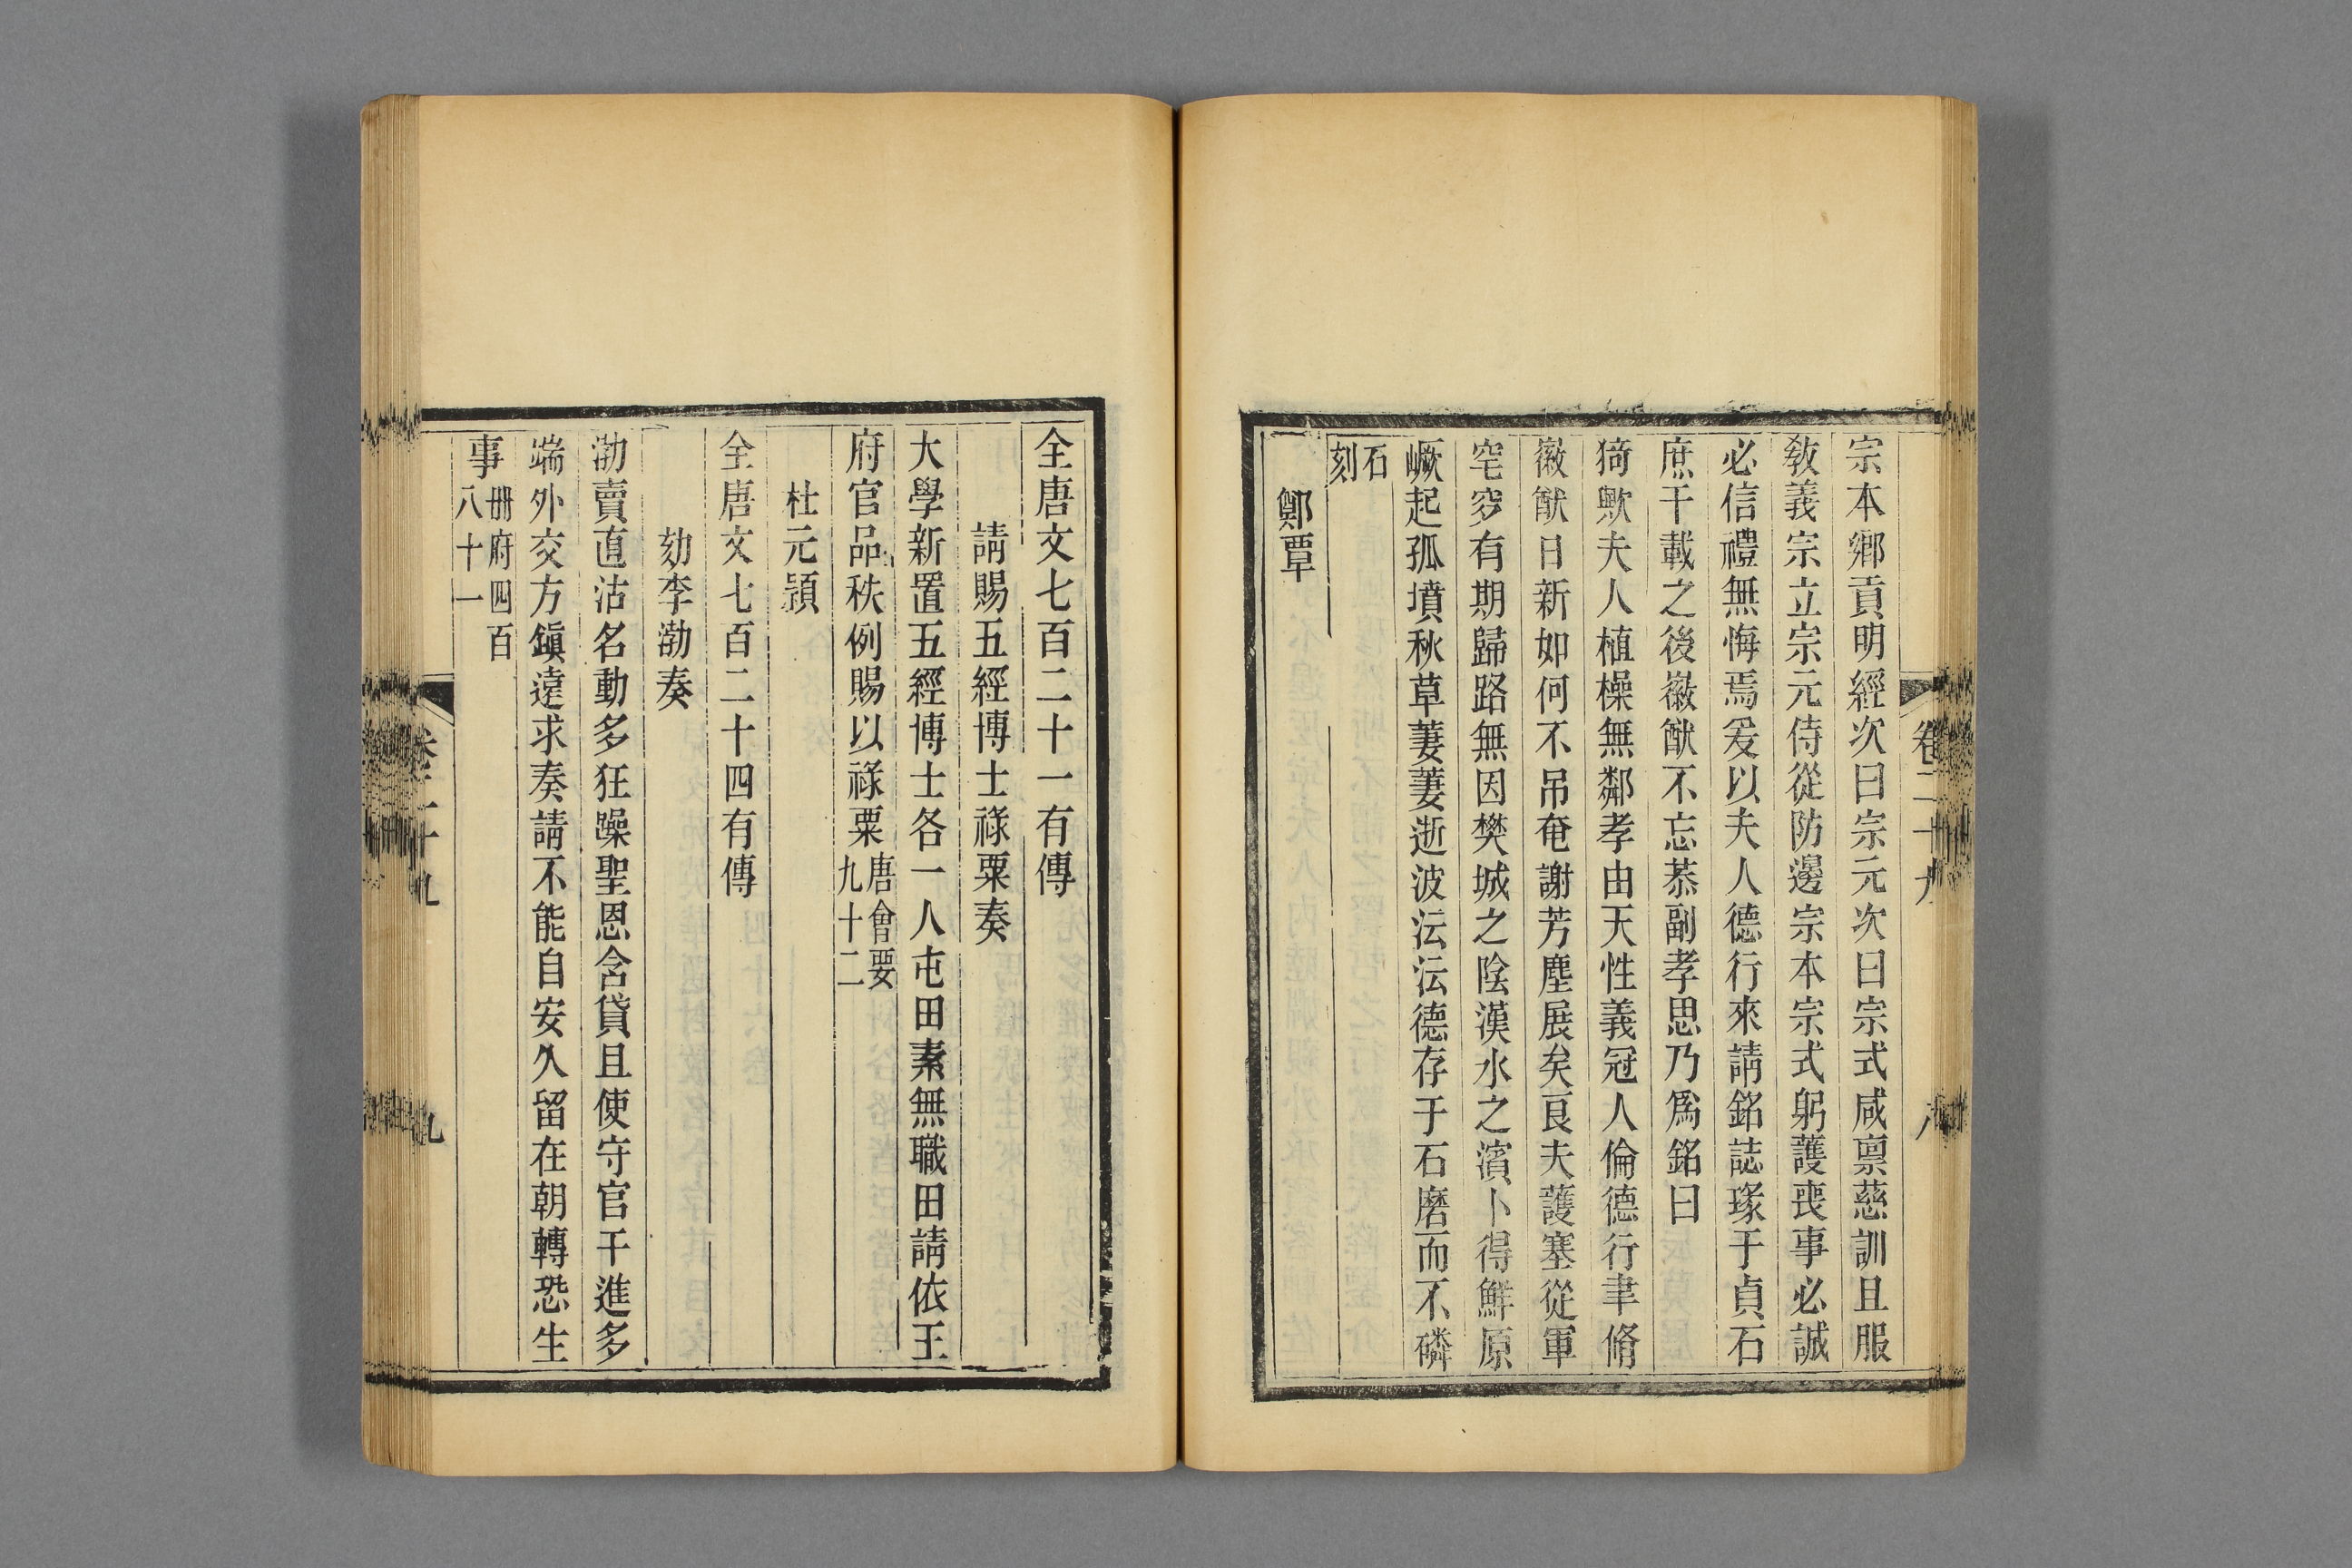 宗本鄉貢明經次曰宗元次曰宗式咸禀慈訓且服
教義宗立宗元侍從防邊宗本宗式躬護喪事必誠
必信禮無悔焉爰以夫人德行來請銘誌瑑于貞石
庶千載之後徽猷不忘恭副孝思乃爲銘曰
猗歟夫人植操無鄰孝由天性義冠人倫德行聿脩
徽猷日新如何不吊奄謝芳塵展矣良夫護塞從軍
窀穸有期歸路無因樊城之陰漢水之濱卜得鮮原
巘起孤墳秋草萋萋逝波沄沄德存于石磨而不磷
石
刻
鄭覃
全唐文七百二十一有傳
請賜五經博士祿粟奏
大學新置五經博士各一人屯田素無職田請依王
府官品秩例賜以祿粟唐會要
九十二
杜元頴
全唐文七百二十四有傳
劾李渤奏
渤賣直沽名動多狂躁聖恩含貸且使守官干進多
端外交方鎭遠求奏請不能自安久留在朝轉恐生
事冊府四百
八十一